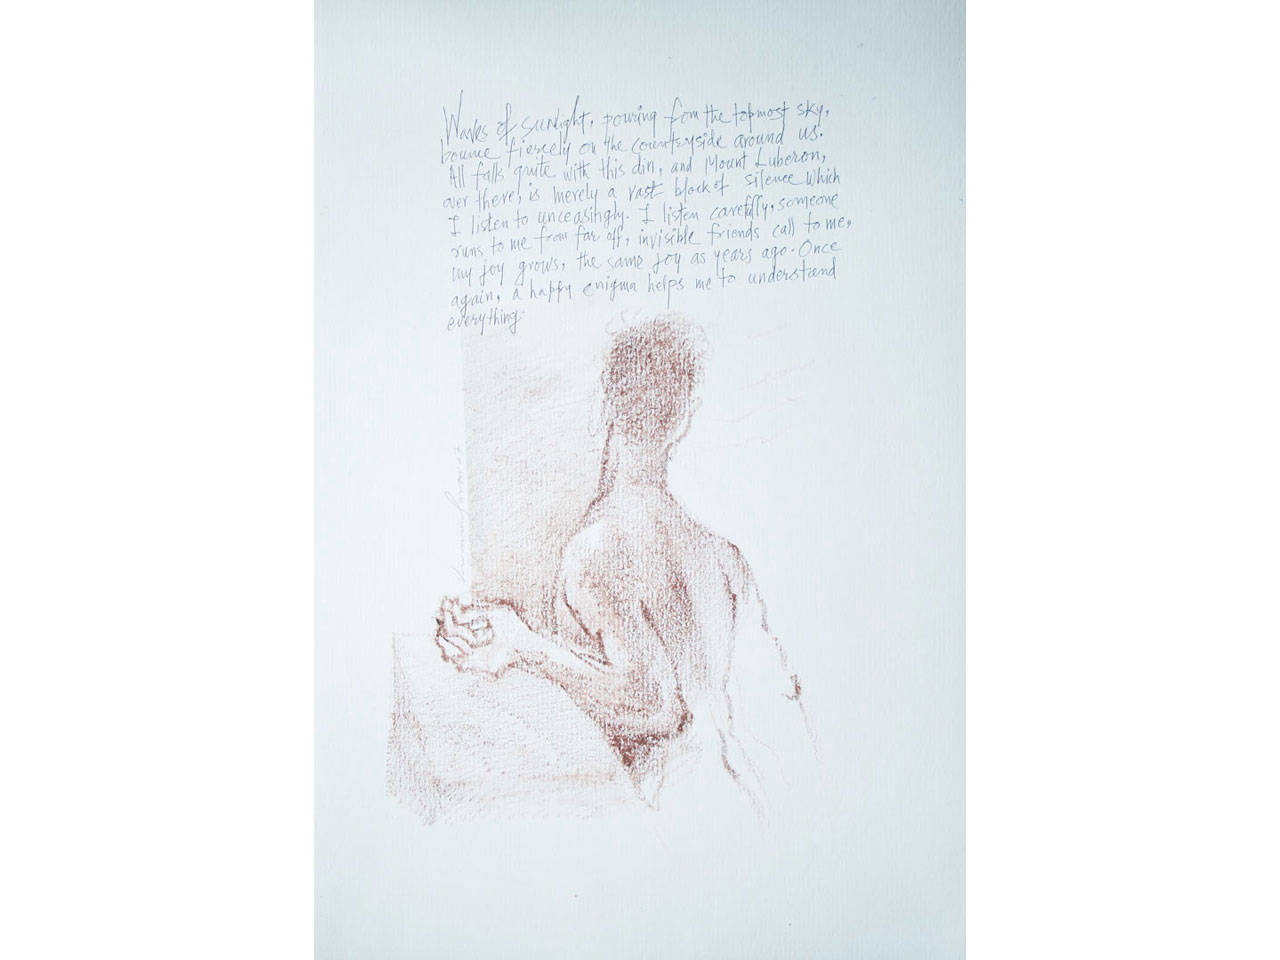 Waves of sunlight, pouring from the topmost sky,
bounce fiercely on the countryside around us.
All falls quite with this din, and Mount Luberon,
over there, is merely a vast block of silence which
I listen to unceasingly. I listen carefully, someone
runs to me from far off, invisible friends call to me,
my joy grows, the same joy as years ago. Once
again, a happy enigma helps me to understand
everything.